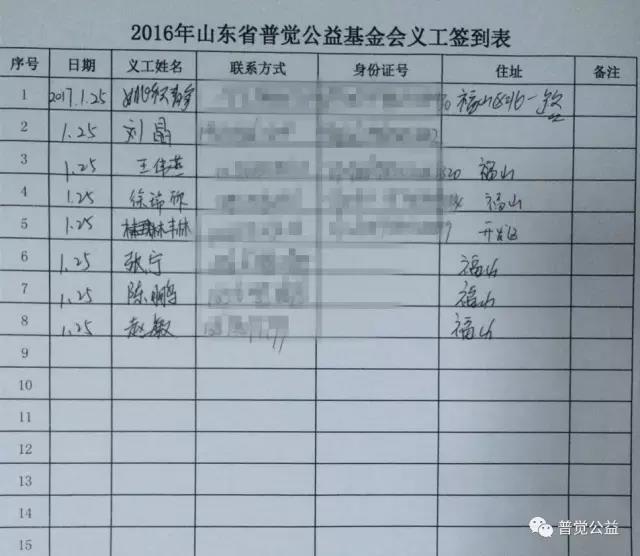 2016年山东省普觉公益基金会义工签到表
序号 日期 义工姓名 联系方式 身份证号 住址 备注
1 2017.1.25
2 1.25 刘晶
3 1.25 王伟燕 福山
4 1.25 徐 福山
5 1.25 开发区
6 1.25 张宁 福山
7 1.25 陈鹏 福山
8 1.25 赵敏 福山
9
10
11
12
13
14
15
普觉公益